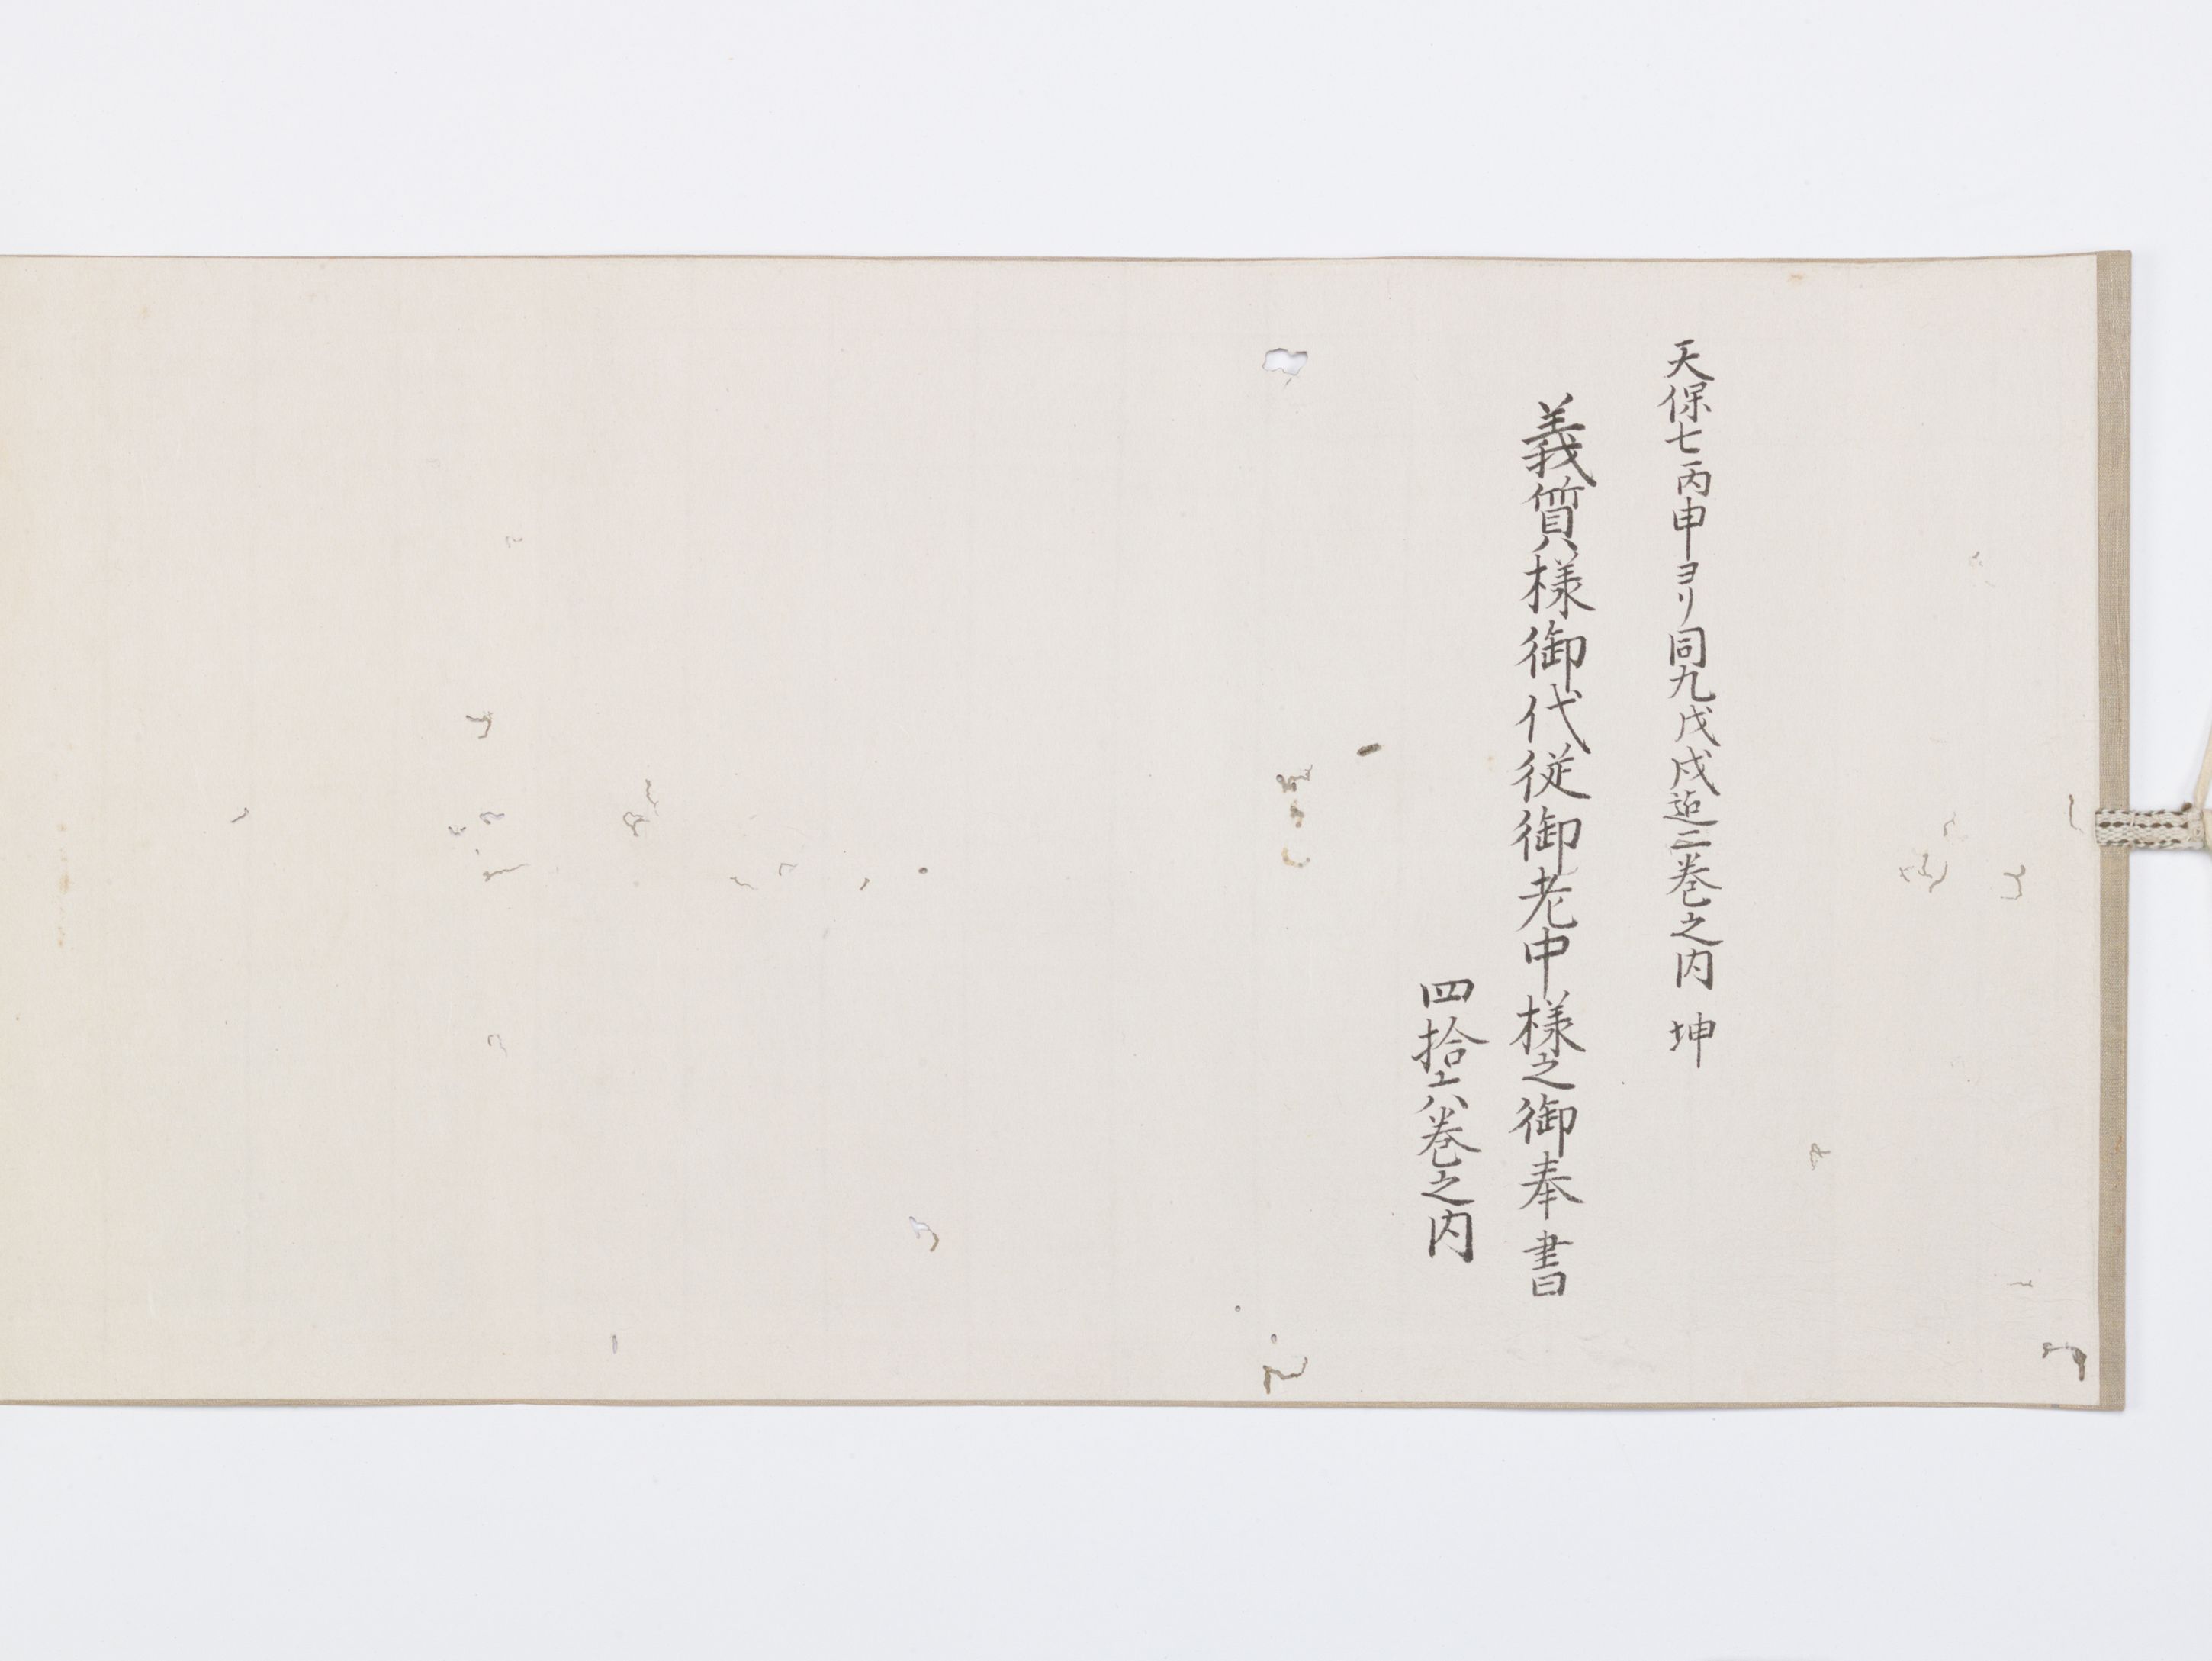 天保七丙申ヨリ同九戊戌迠二巻之内　坤
義質様御代従御老中様之御奉書
四拾六巻之内